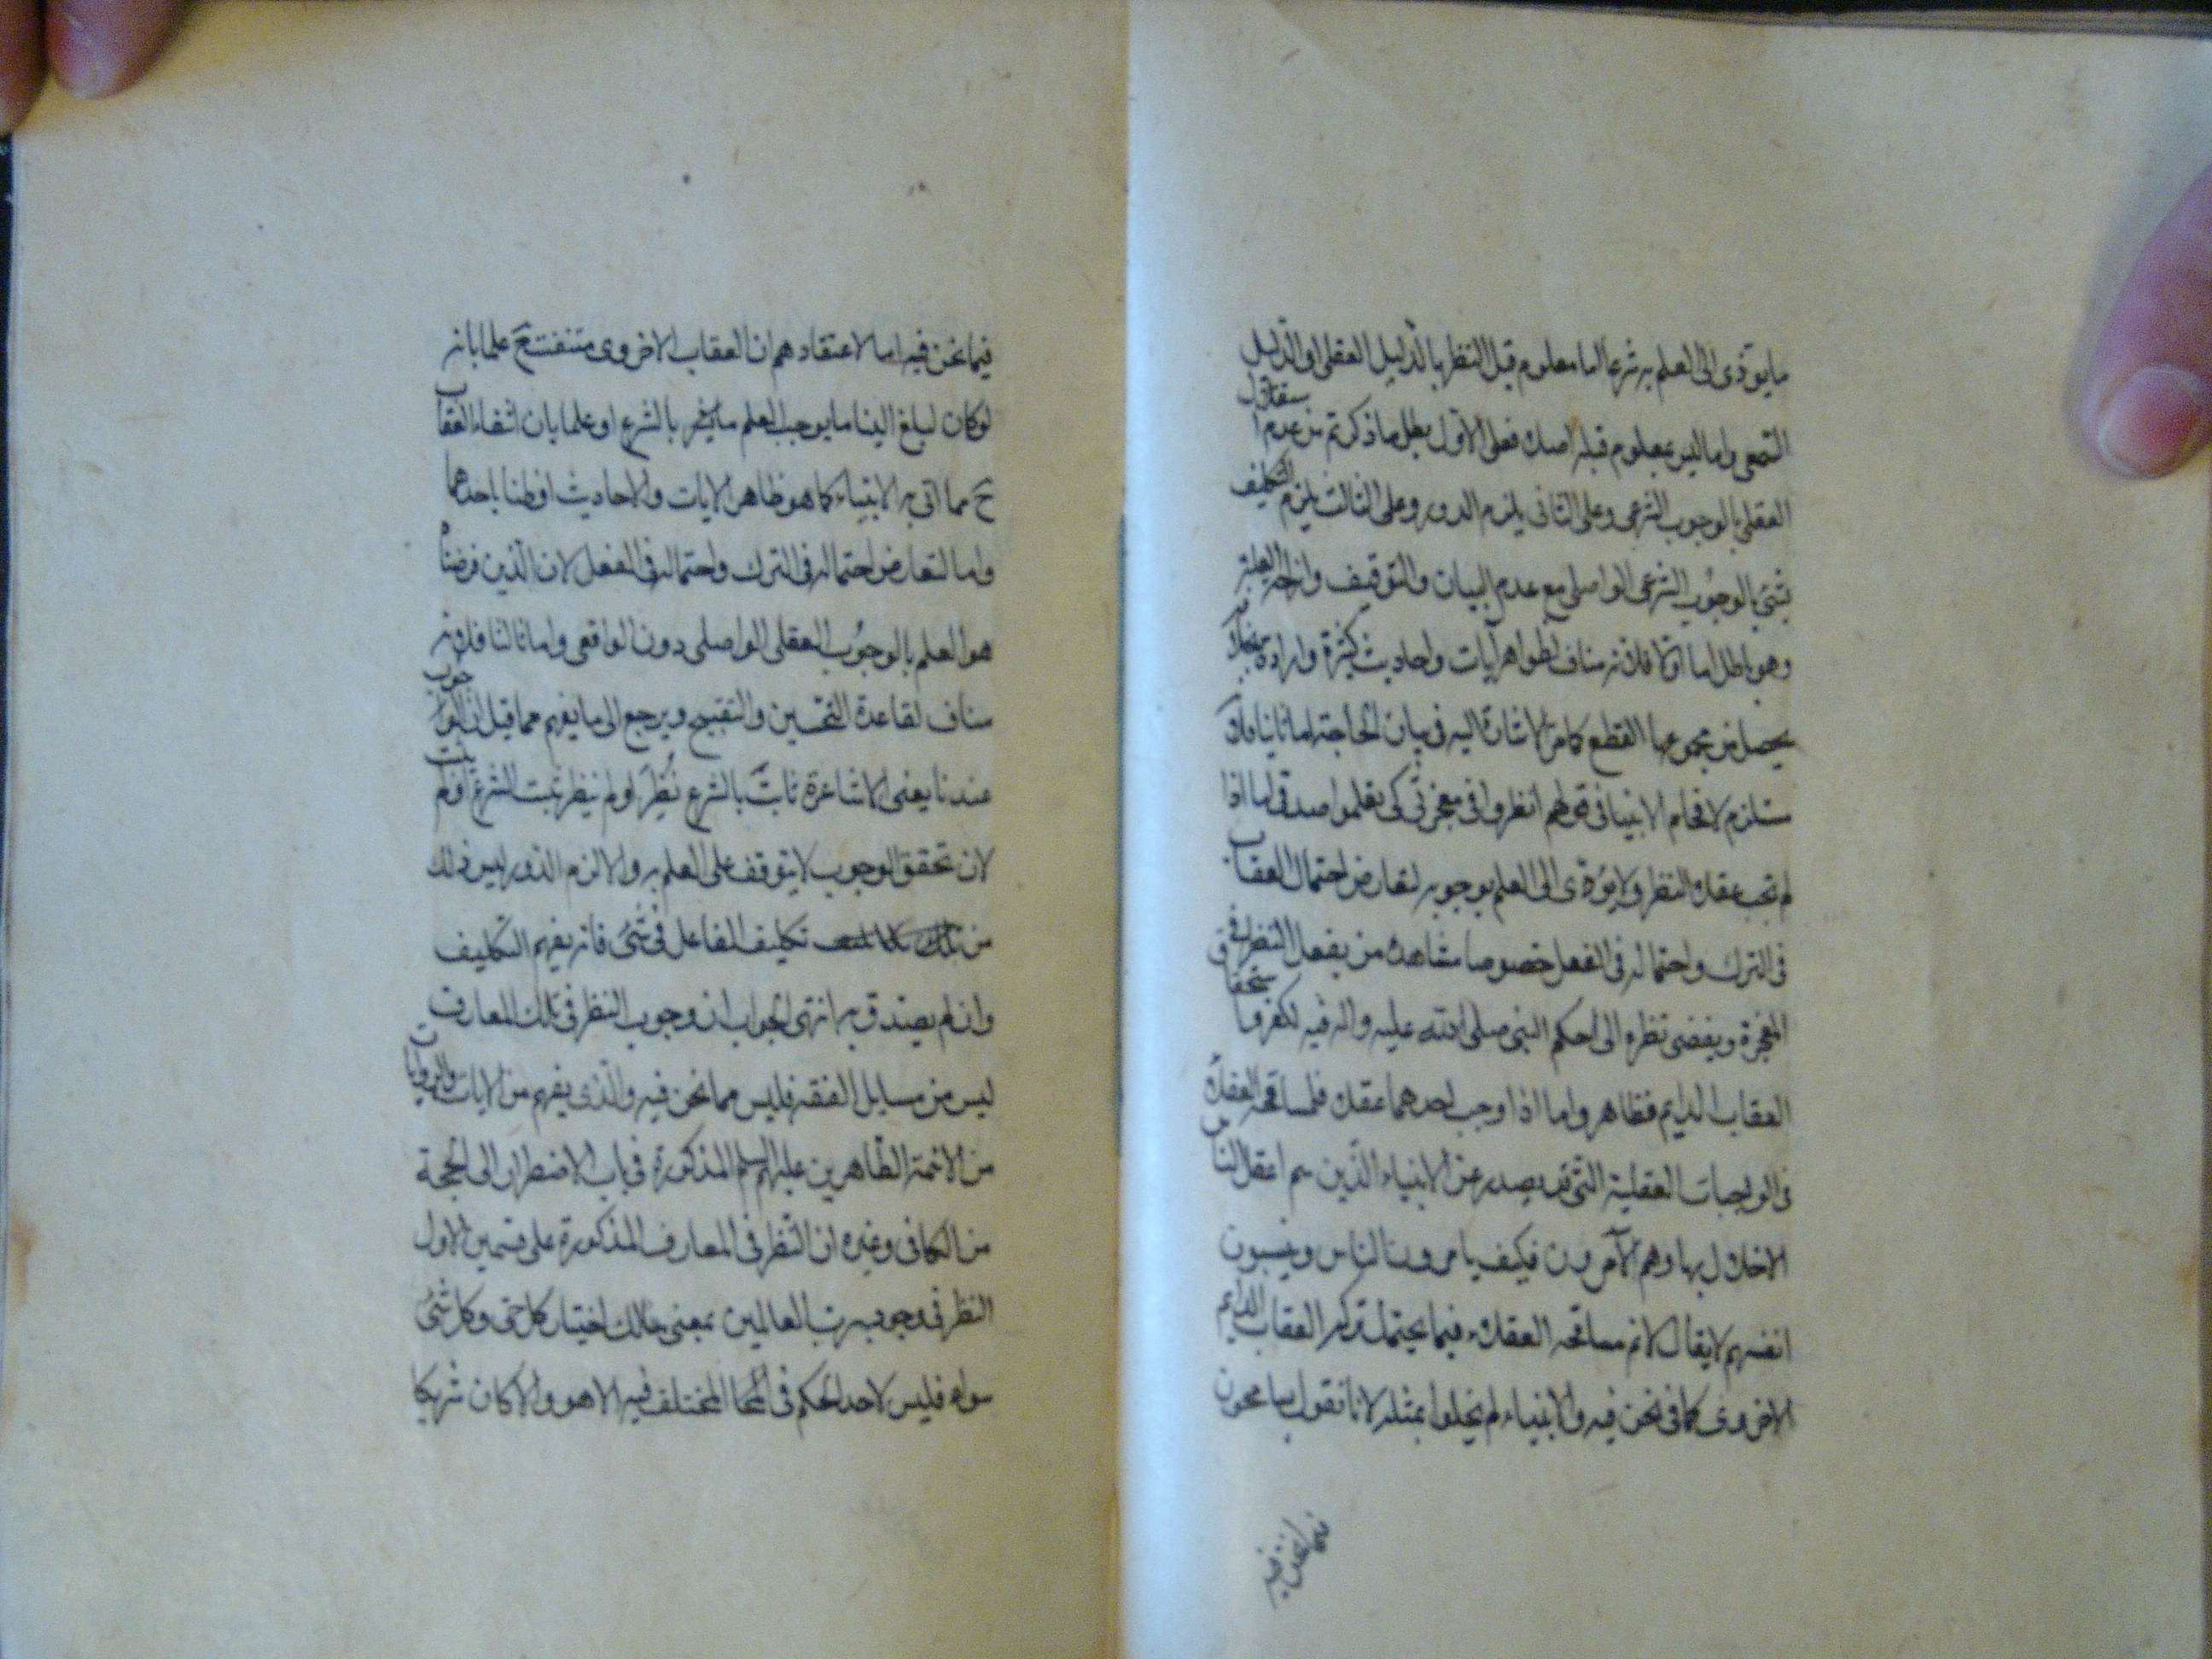 ما يؤدى الى العلم به شرعا اما معلوم قبل النظر بالدليل العقلى او الدليل
السمعى واما ليس بمعلوم قبله اصلا فعلى الاول بطل ما ذكرتم من عدم استقلال
العقل بالوجوب الشرعى وعلى الثانى يلزم الدور وعلى الثالث يلزم التكليف
بشئ بالوجوب الشرعى الواصلى مع عدم البيان والتوقيف وازاحة العلة
وهو باطل اما اولا فلانه مناف لظواهر آيات واحاديث كثيرة
يحصل من مجموعها القطع كما مر الاشارة اليه فى بيان الحاجة اما ثانيا فلانه
مستلزم لافحام الانبيا فى قولهم انظروا فى معجزتى كى تعلموا صدقى اما اذا
لم تجب عقلا النظر ولا يؤدى الى العلم بوجوبه لتعارض احتمال العقاب
فى الترك واحتماله فى الفعل خصوصا مشاهدة من يفعل النظر فى
المعجزة ويفضى نظره الى حكم النبى صلى الله عليه واله فيه بكفره واستحقاق
العقاب الدايم فظاهر واما اذا وجب احدهما عقلا فلمسامحة العقلاء
فى الواجبات العقلية التى قد يصدر عن الانبياء الذين هم اعقل الناس
الاخلال بها وهم الآمرون فكيف يامرون الناس وينسون
انفسهم لا يقال لا نم مسامحة العقلاء فيما يحتمل تركه العقاب الدايم
الاخروى كما فى نحن فيه والانبياء لم يخلوا بمثله لانا نقول يسامحون
فيما نحن فيه
فيما نحن فيه اما لاعتقادهم ان العقاب الاخروى منتف ح علما بانه
لو كان لبلغ الينا ما يوجب العلم بالشرع او علما بان انتفاء العقاب
ح مما اتى به الانبياء كما هو ظاهر الايات والاحاديث او ظنا باحدهما
واما لتعارض احتماله فى الترك واحتماله فى الفعل لان الذين فرضناه
هو العلم بالوجوب العقلى الواصلى دون الواقعى واما ثالثا فلانه
مناف لقاعدة التحسين والتقبيح ويرجع الى ما يفهم مما قيل ان الوجوب
عندنا يعنى الاشاعرة ثابت بالشرع نظر او لم ينظر ثبت الشرع او لم يثبت
لان تحقق الوجوب لا يتوقف على العلم به والا لزم الدور ليس ذلك
من تكليف الغافل فى شئ فانه يفهم التكليف
وان لم يصدق به انتهى الجواب ان وجوب النظر فى تلك المعارف
ليس من مسايل الفقه فليس مما نحن فيه والذى يفهم من الايات والروايات
من الائمة الطاهرين عليهم السلم المذكورة فى باب الاضطرار الى الحجة
من الكافى وغيره ان النظر فى المعارف المذكورة على قسمين الاول
النظر فى وجود رب العالمين بمعنى مالك اختيار كل حى وكل شئ
سواه فليس لاحد الحكم فى المختلف فيه الا هو والا كان شريكا